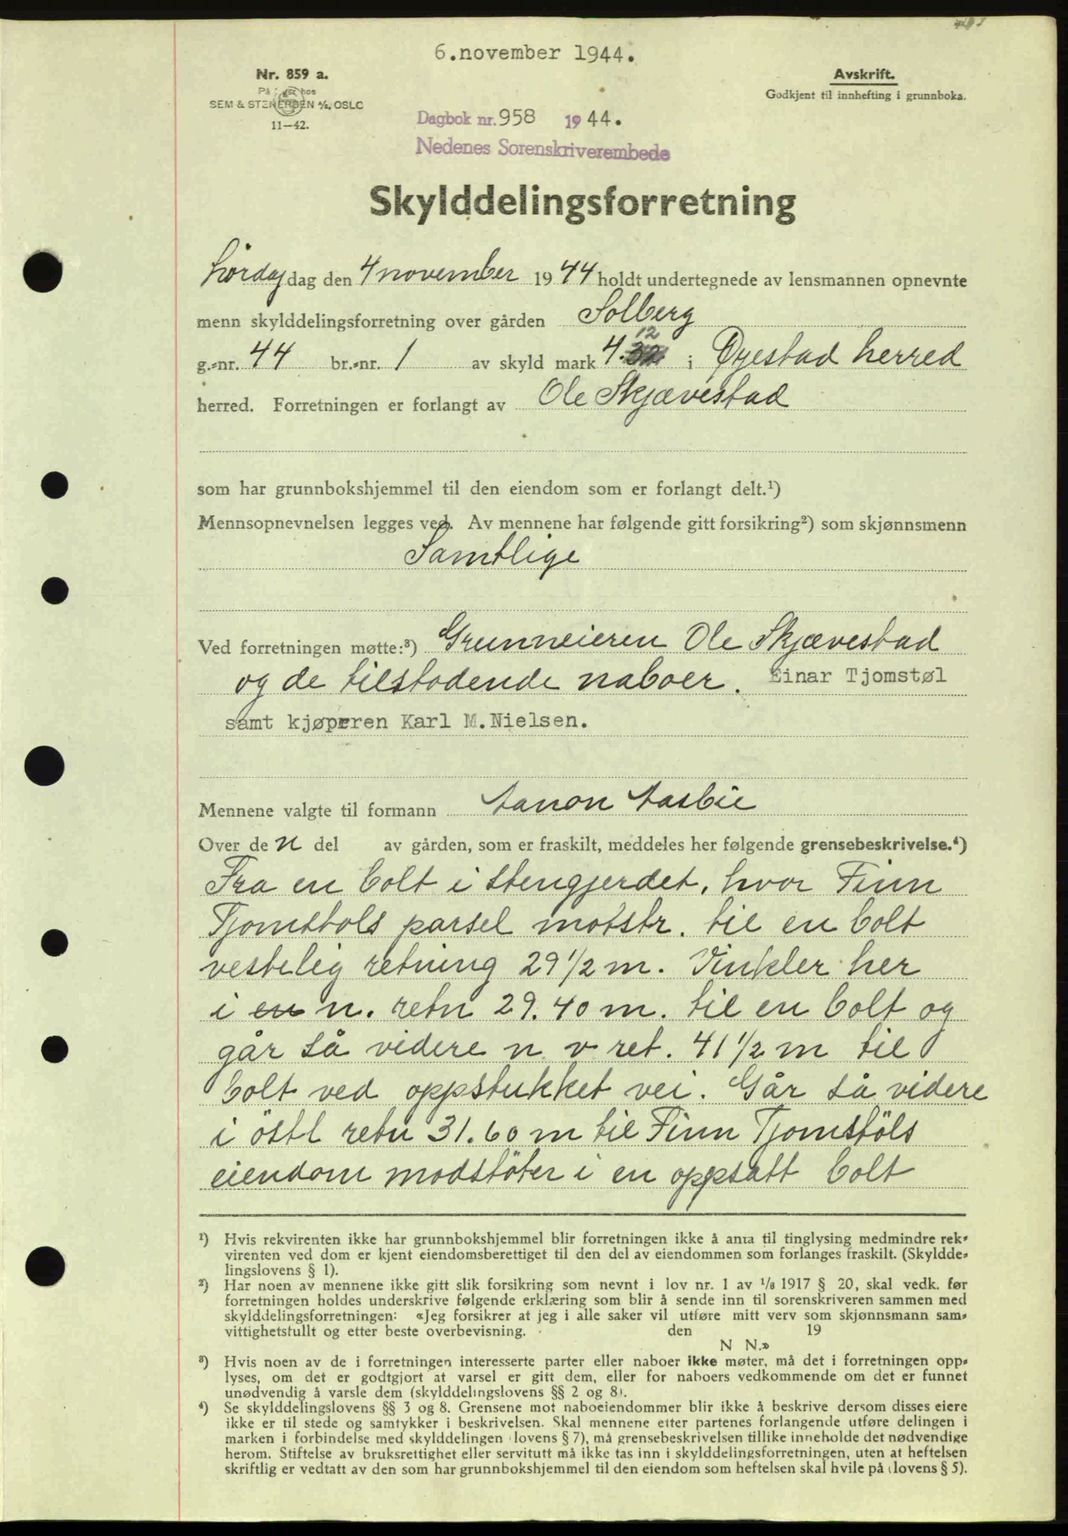 6.november 1944.
Nr. 859 a.
SEM & STENERSEN A/S, OSLO
11—42.
Avskrift.
Godkjent til innhefting i grunnboka.
Dagbok nr. 958 1944.
Nedenes Sorenskriverembede
Skylddelingsforretning
Lørdag dag den 4 november 1944 holdt undertegnede av lensmannen opnevnte
menn skylddelingsforretning over gården Solberg
g.-nr. 44 br.-nr. 1 av skyld mark 4.12 i Øyestad herred
herred. Forretningen er forlangt av Ole Skjævestad
som har grunnbokshjemmel til den eiendom som er forlangt delt.¹)
Mennsopnevnelsen legges ved. Av mennene har følgende gitt forsikring²) som skjønnsmenn
Samtlige
Ved forretningen møtte:³) Grunneieren Ole Skjævestad
og de tilstodende naboer. Einar Tjomstøl
samt kjøperen Karl M.Nielsen.
Mennene valgte til formann Aanon Aasbie
Over de n del av gården, som er fraskilt, meddeles her følgende grensebeskrivelse.⁴)
Fra en bolt i stengjerdet, hvor Finn
Tjomstols parsel motstr. til en bolt
vestelig retning 29 1/2 m. Vinkler her
i en n. retn 29.40 m. til en bolt og
går så videre n v ret. 41 1/2 m til
bolt ved oppstukket vei. Går så videre
i östl retn 31.60 m til Finn Tjomstöls
eiendom modstöter i en oppsatt bolt
¹) Hvis rekvirenten ikke har grunnbokshjemmel blir forretningen ikke å anta til tinglysing medmindre rek-
virenten ved dom er kjent eiendomsberettiget til den del av eiendommen som forlanges fraskilt. (Skyldde-
lingslovens § 1).
²) Har noen av mennene ikke gitt slik forsikring som nevnt i lov nr. 1 av 1/8 1917 § 20, skal vedk. før
forretningen holdes underskrive følgende erklæring som blir å sende inn til sorenskriveren sammen med
skylddelingsforretningen: «Jeg forsikrer at jeg i alle saker vil utføre mitt verv som skjønnsmann sam-
vittighetsfullt og etter beste overbevisning. den 19
N N.»
³) Hvis noen av de i forretningen interesserte parter eller naboer ikke møter, må det i forretningen opp-
lyses, om det er godtgjort at varsel er gitt dem, eller for naboers vedkommende om det er funnet
unødvendig å varsle dem (skylddelingslovens §§ 2 og 8).
⁴) Se skylddelingslovens §§ 3 og 8. Grensene mot naboeiendommer blir ikke å beskrive dersom disses eiere
ikke er til stede og samtykker i beskrivelsen. Skal mennene etter partenes forlangende utføre delingen i
marken i forbindelse med skylddelingen (lovens § 7), må grensebeskrivelsen tillike inneholde det nødvendige
herom. Stiftelse av bruksrettighet eller servitutt må ikke tas inn i skylddelingsforretningen, uten at heftelsen
skriftlig er vedtatt av den som har grunnbokshjemmel til den eiendom som heftelsen skal hvile på (lovens § 5).